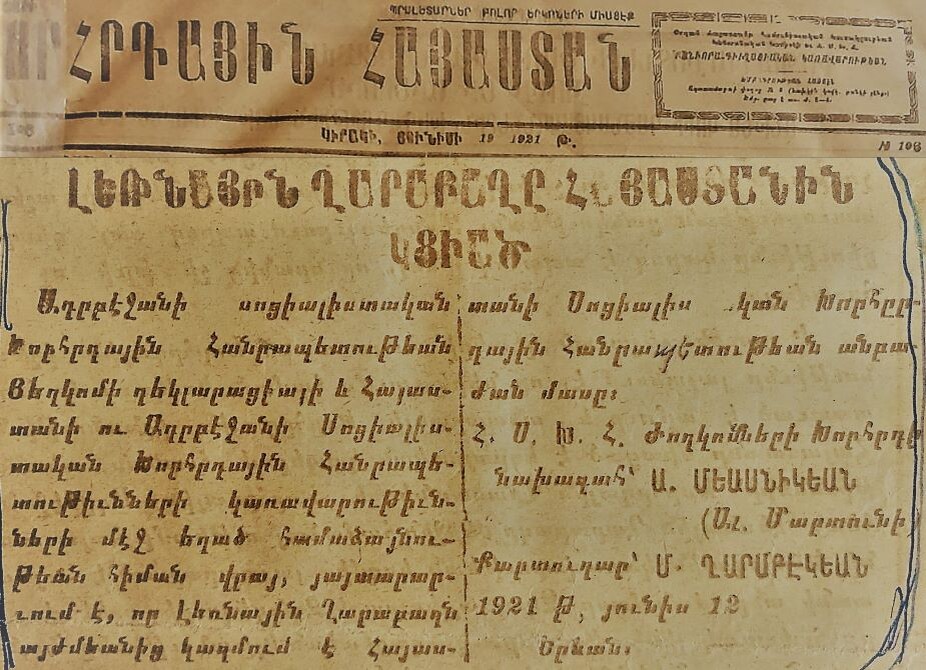 ՊՐԱԼԵՏԱՐՆԵՐ ԲՈԼՈՐ ԵՐԿՈՆԵՐԻ ՄԻԱՑԷՔ
ՀՐԴԱՅԻՆ ՀԱՅԱՍՏԱՆ
ԿԻՐԱԿԻ, ՅՈՒՆԻՍԻ 19 1921 Թ.
№ 106
ԼԵՌՆԱՅԻՆ ՂԱՐԱԲԱՂԸ ՀԱՅԱՍՏԱՆԻՆ
ԿՑԻԱԾ
Ադրբէջանի սոցիալիստական
Խորհրդային Հանրապետութեան
Յեղկոմի դեկլարացիայի և Հայաս-
տանի ու Ադրբէջանի Սոցիալիս-
տական Խորհրդային Հանրապե-
տութիւնների կառավարութիւն-
ների մէջ եղած համաձայնու-
թեան հիման վրայ, յայտարար-
ւում է, որ Լեռնային Ղարաբաղն
այժմեանից կազմում է Հայաս-
տանի Սոցիալիս կան Խորհըր-
դային Հանրապետութեան անբա-
ժան մասը։
Հ. Ս. Խ. Հ. Ժողկոմների Խորհրդի
նախագահ՝ Ա. ՄԵԱՍՆԻԿԵԱՆ
(Ալ. Մարտունի)
Քարտուղար՝ Մ. ՂԱՐԱԲԷԿԵԱՆ
1921 Թ, յունիս 12
Երևան։